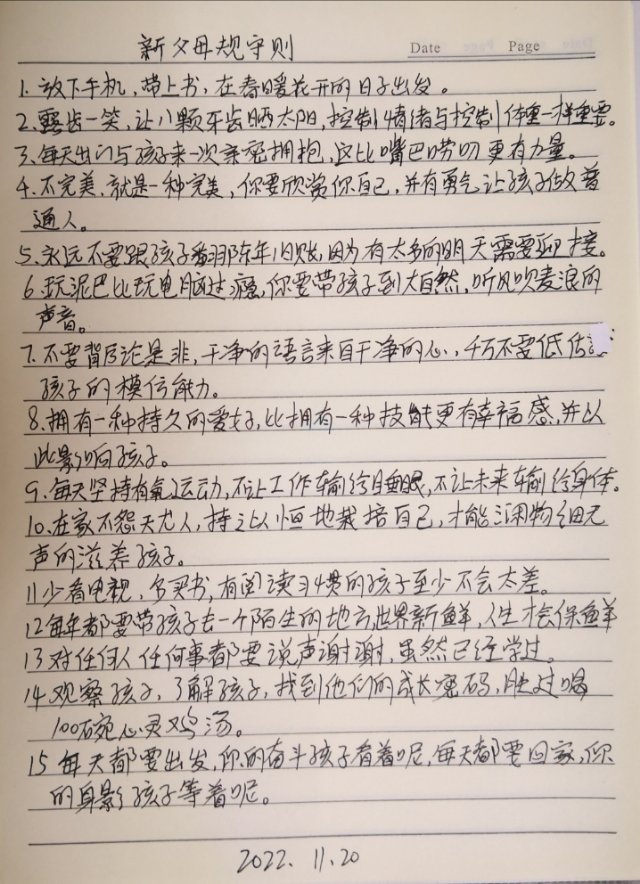 新父母规守则
Date Page
1.放下手机,带上书,在春暖花开的日子出发。
2.露齿一笑,让八颗牙齿晒太阳,控制情绪与控制体重一样重要。
3.每天出门与孩子来一次亲密拥抱,这比嘴巴唠叨更有力量。
4.不完美,就是一种完美,你要欣赏你自己,并有勇气让孩子做普
通人。
5.永远不要跟孩子翻那陈年旧账,因为有太多的明天需要迎接。
6.玩泥巴比玩电脑过瘾,你要带孩子到大自然,听风吹麦浪的
声音。
7.不要背后论是非,干净的语言来自干净的心,千万不要低估
孩子的模仿能力。
8.拥有一种持久的爱好,比拥有一种技能更有幸福感,并以
此影响孩子。
9.每天坚持有氧运动,不让工作输给睡眠,不让未来输给身体。
10.在家不怨天尤人,持之以恒地栽培自己,才能润物细无
声的滋养孩子。
11少看电视,多买书,有阅读习惯的孩子至少不会太差。
12每年都要带孩子去一个陌生的地方,世界新鲜,人生才会保鲜
13对任何人任何事都要说声谢谢,虽然已经学过。
14观察孩子,了解孩子,找到他们的成长密码,胜过喝
100碗心灵鸡汤。
15每天都要出发,你的奋斗孩子看着呢,每天都要回家,你
的身影孩子等着呢。
2022.11.20